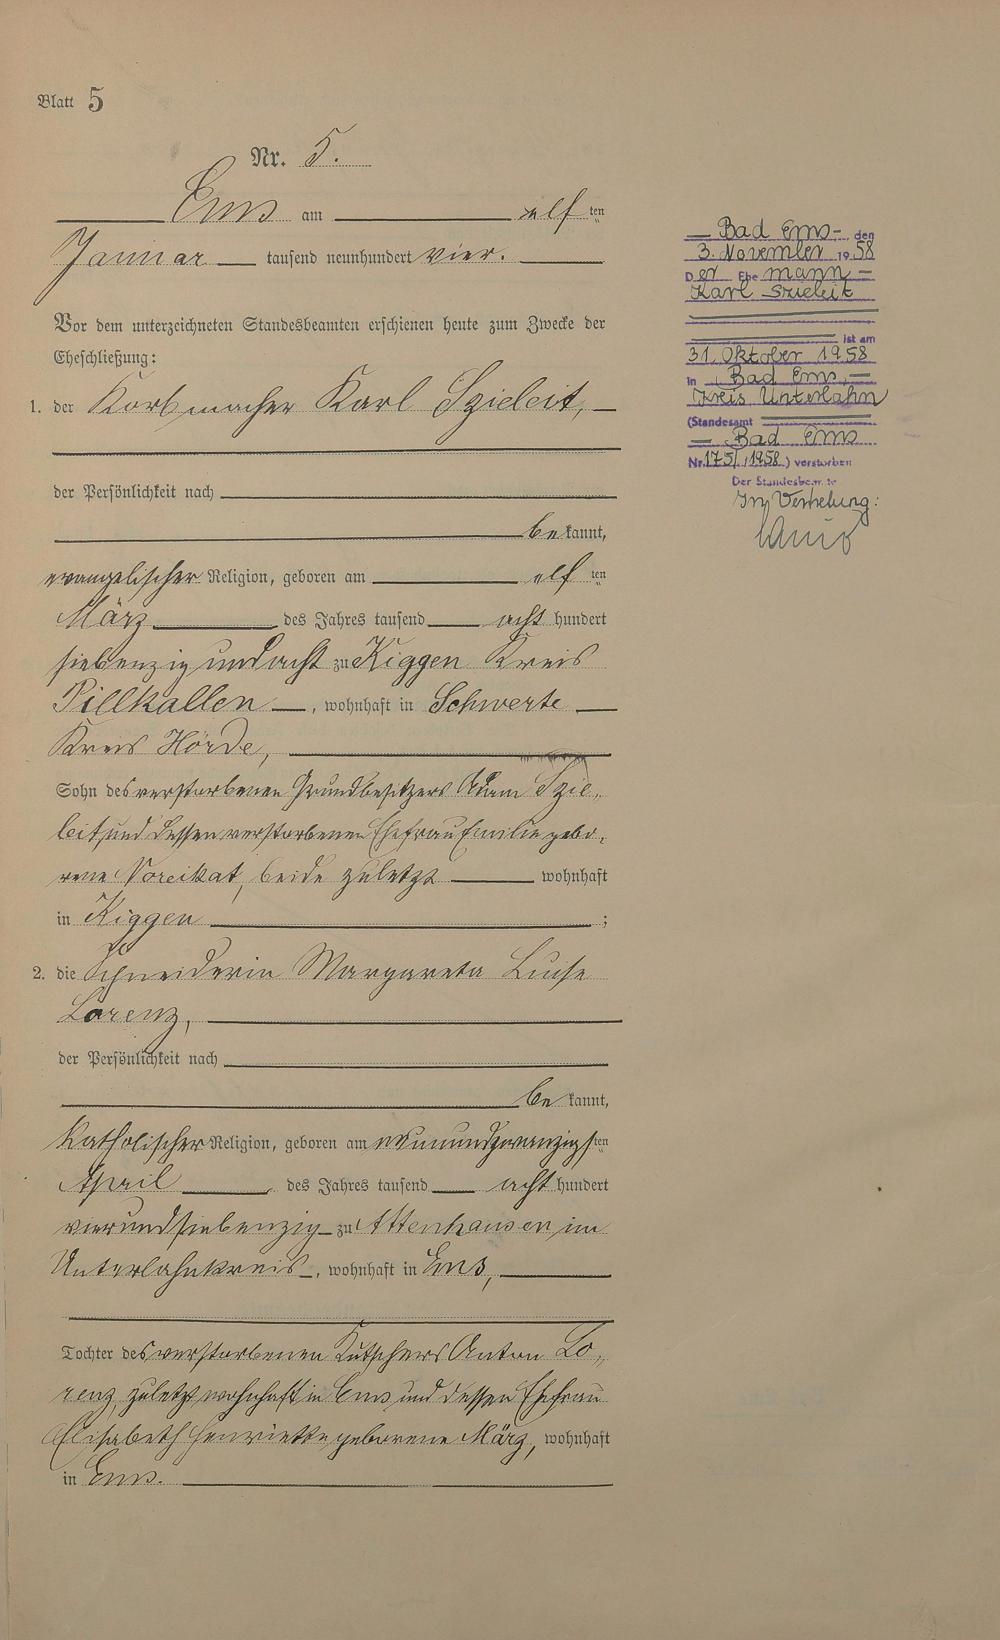 Blatt 5
Nr. 5.
Ems am elf ten
Januar tausend neunhundert vier.
Vor dem unterzeichneten Standesbeamten erschienen heute zum Zwecke der
Eheschließung:
1. der Korbmacher Karl Szieleit,
der Persönlichkeit nach
be kannt,
evangelischer Religion, geboren am elf ten
März des Jahres tausend acht hundert
siebenzig und acht zu Kiggen Kreis
Pillkallen, wohnhaft in Schwerte
Kreis Hörde,
Sohn des verstorbenen Grundbesitzers Adam Szie-
leit und dessen verstorbenen Ehefrau Emilie gebo-
rene Noreikat, beide zuletzt wohnhaft
in Kiggen ;
2. die Schneiderin Margareta Luise
Lorenz,
der Persönlichkeit nach
be kannt,
katholischer Religion, geboren am neunundzwanzigsten
April des Jahres tausend acht hundert
vierundsiebenzig zu Attenhausen im
Unterlahnkreis, wohnhaft in Ems,
Tochter des verstorbenen Kutschers Anton Lo-
renz, zuletzt wohnhaft in Ems und dessen Ehefrau
Elisabeth Henriette geborene März, wohnhaft
in Ems.
Bad Ems, den
3. November 1958
Der Ehemann
Karl Szieleit
ist am
31. Oktober 1958
in Bad Ems,
Kreis Unterlahn
(Standesamt
Bad Ems
Nr. 175/1958) verstorben
Der Standesbeamte
In Vertretung: